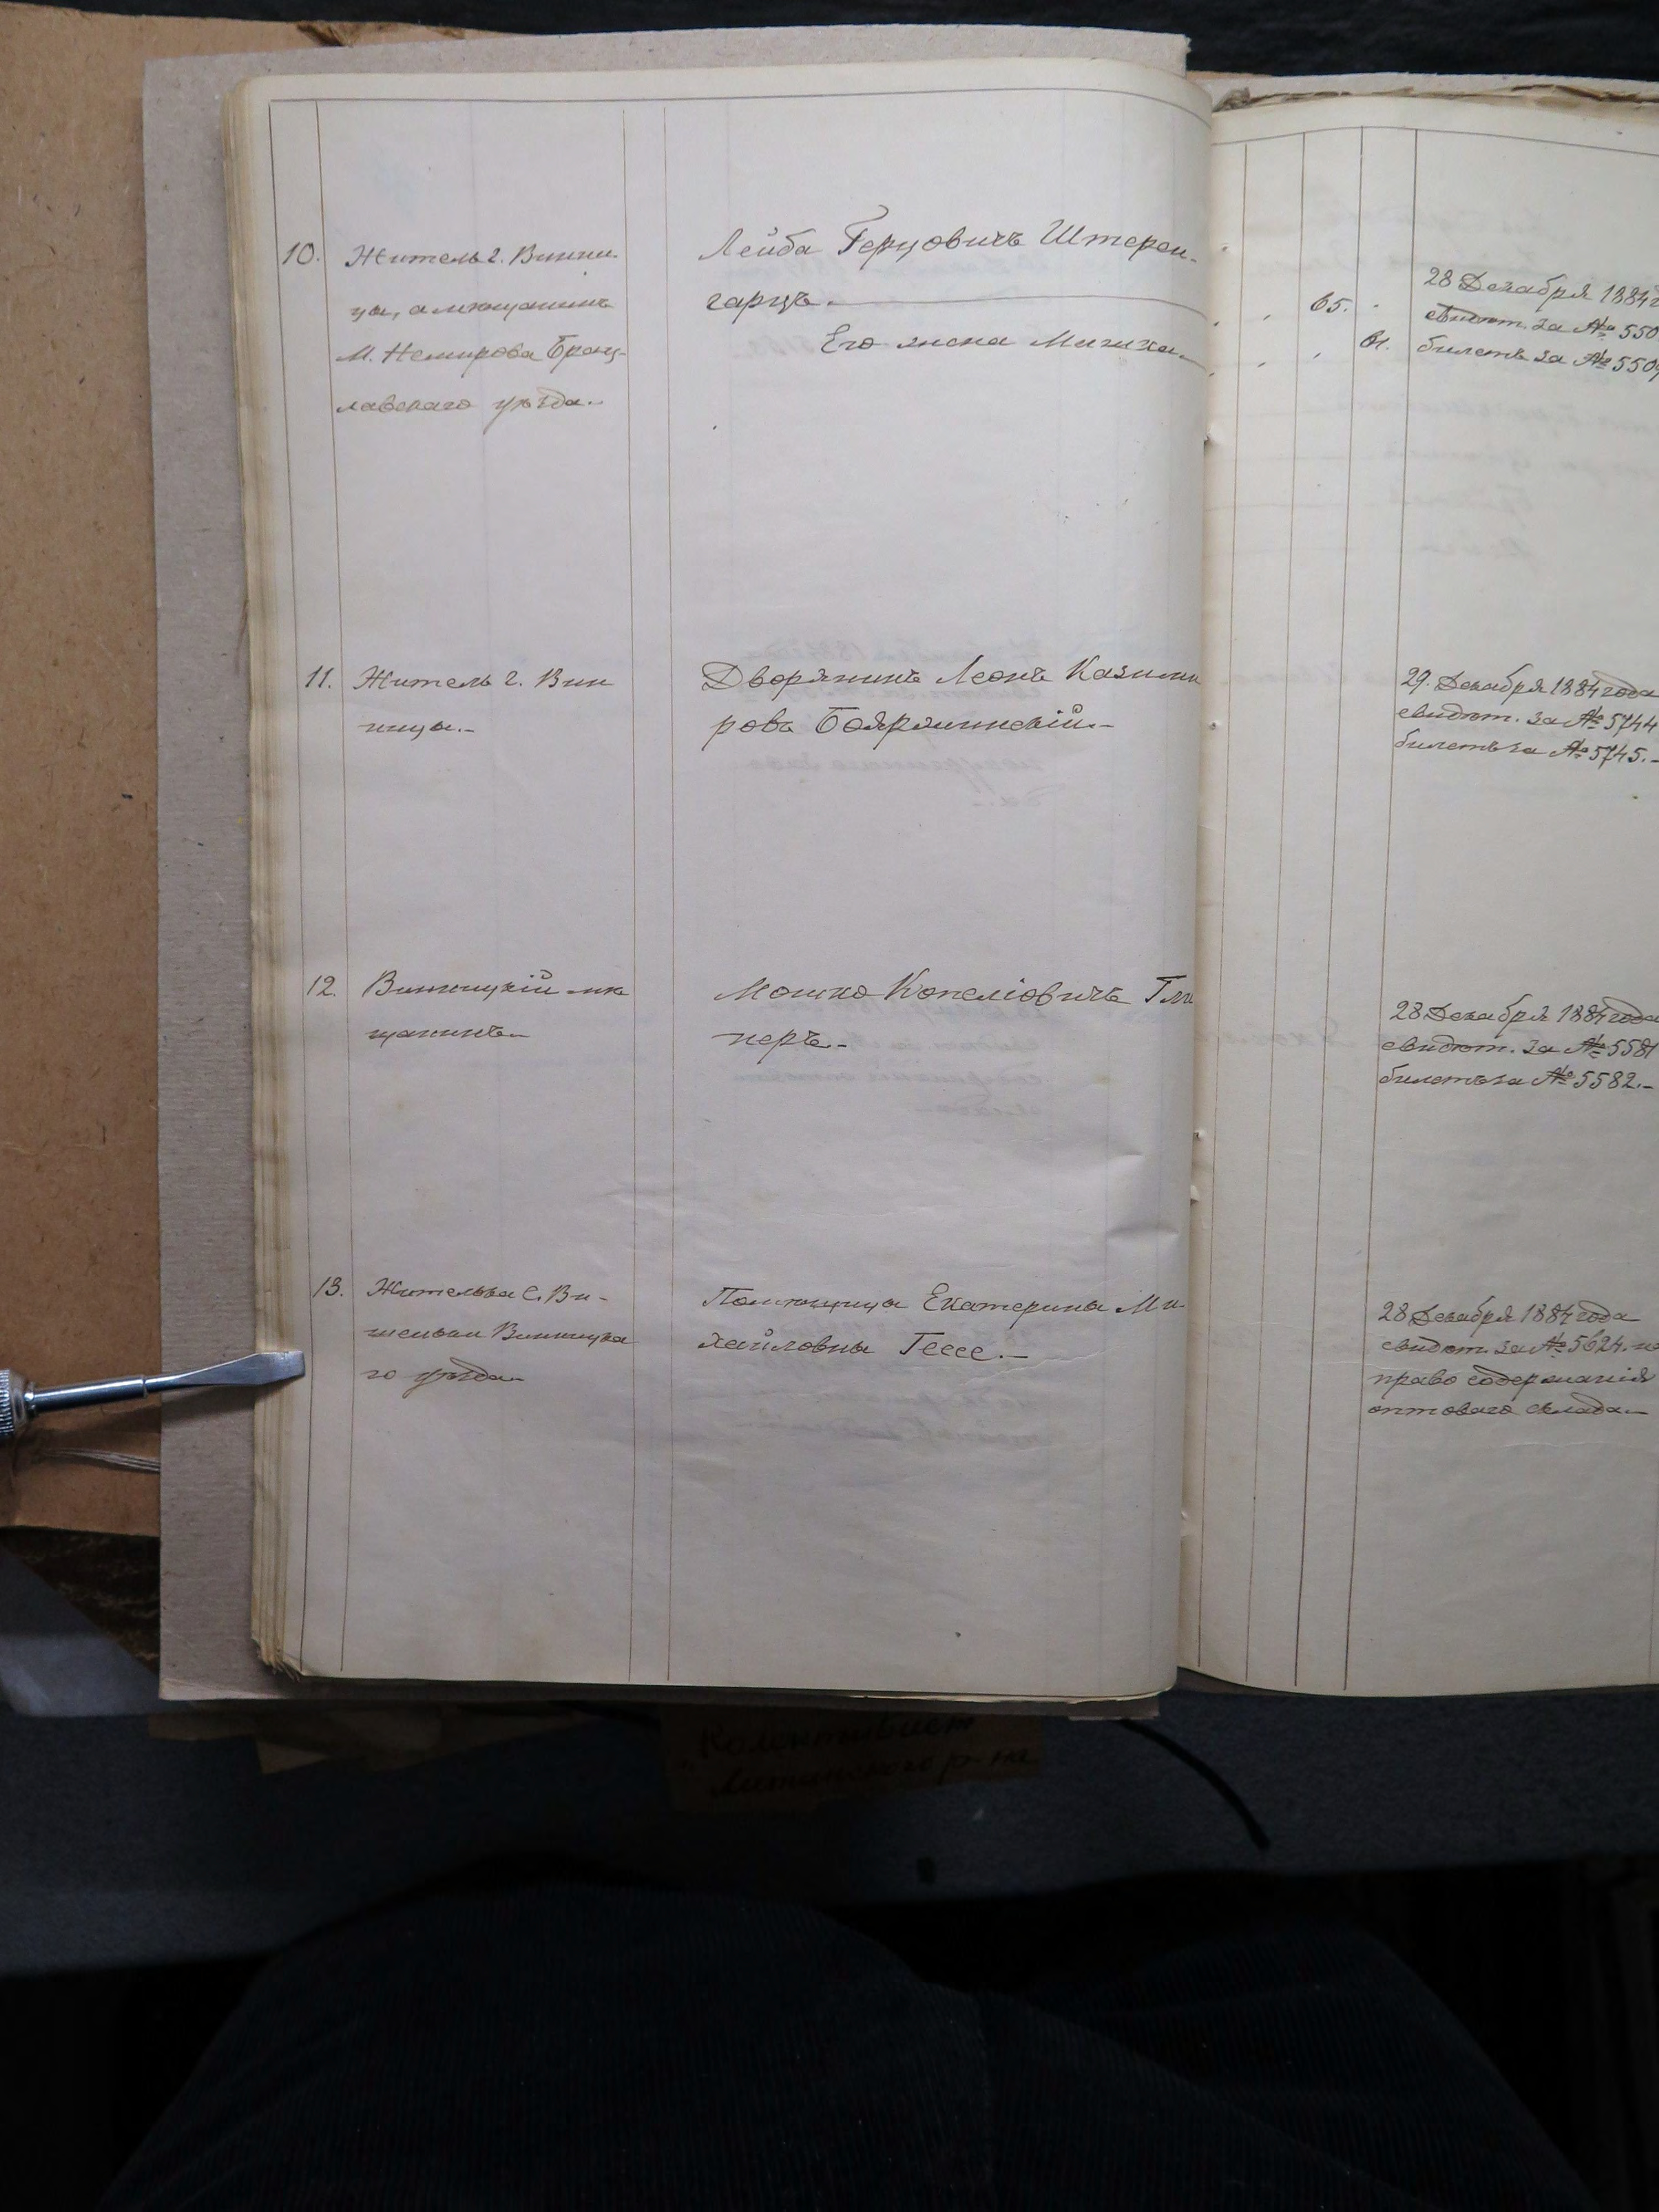 10. Житель г. Винни-
цы, а мѣщанинъ
М. Немирова Брац-
лавскаго уѣзда.-
Лейба Герцовичъ Штерен-
гарцъ.-
Его жена
65.
61.
28 Декабря 1884 г
свидѣт. за № 550
билетъ за № 5509
11. Житель г. Вин
ницы.-
Дворянинъ Леонъ Казими
ровъ
29 Декабря 1884 года
свидѣт. за № 5744
билетъ за № 5745.-
12. Винницкій мѣ
щанинъ.-
Мошко Копеліовичъ Гли
неръ.-
28 Декабря 1884 года
свидѣт. за № 5581
билетъ за № 5582.-
13. Жителька С. Ви-
шеньки Винницка
го уѣзда.-
Помѣщица Екатерина Ми
хайловна Гессе.-
28 Декабря 1884 года
свидѣт. за № 5624. на
право содержанія
оптоваго склада.-
Колективист
Литинского р-на